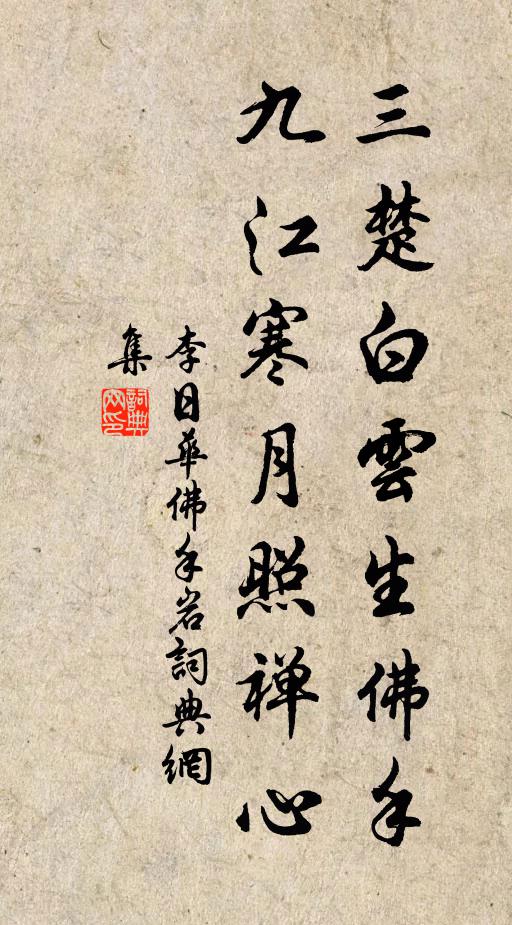 三楚白雲生佛手
九江寒月照禅心
李日華佛手岩詞典網
集
詞典
网印